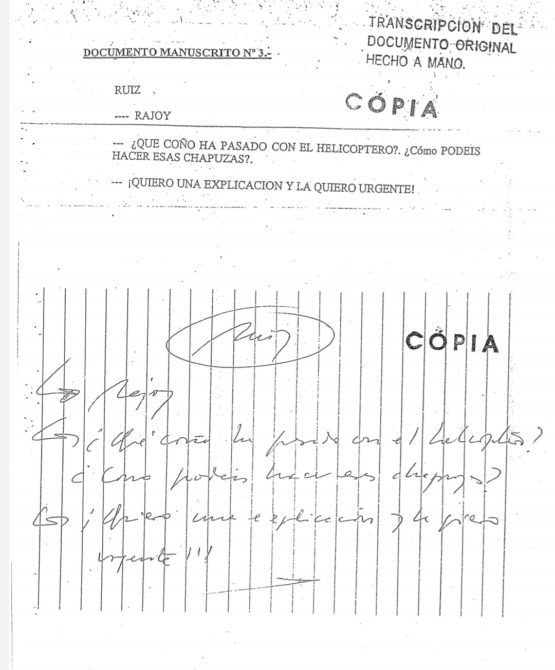 TRANSCRIPCION DEL
DOCUMENTO ORIGINAL
HECHO A MANO.
DOCUMENTO MANUSCRITO Nº 3.-
RUIZ
CÓPIA
---- RAJOY
--- ¿QUE COÑO HA PASADO CON EL HELICOPTERO?. ¿Cómo PODEIS
HACER ESAS CHAPUZAS?.
--- ¡QUIERO UNA EXPLICACION Y LA QUIERO URGENTE!
Ruiz
CÓPIA
Rajoy
¿Qué coño ha pasado con el helicoptero?
¿Como podeis hacer esas chapuzas?
¡Quiero una explicación y la quiero
urgente!!!